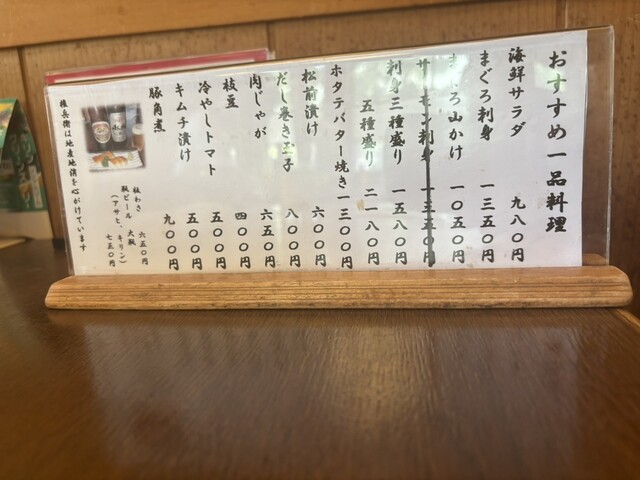 おすすめ一品料理
海鮮サラダ 九八〇円
まぐろ刺身 一三五〇円
まぐろ山かけ 一〇五〇円
サーモン刺身 一三五〇円
刺身三種盛り 一五八〇円
五種盛り 二一八〇円
ホタテバター焼き 一三〇〇円
松前漬け 六〇〇円
だし巻き玉子 八〇〇円
肉じゃが 六五〇円
枝豆 四〇〇円
冷やしトマト 五〇〇円
キムチ漬け 五〇〇円
豚角煮 九〇〇円
板わさ 六五〇円
瓶ビール 大瓶
(アサヒ、キリン) 七五〇円
兵衛は地産地消を心がけています